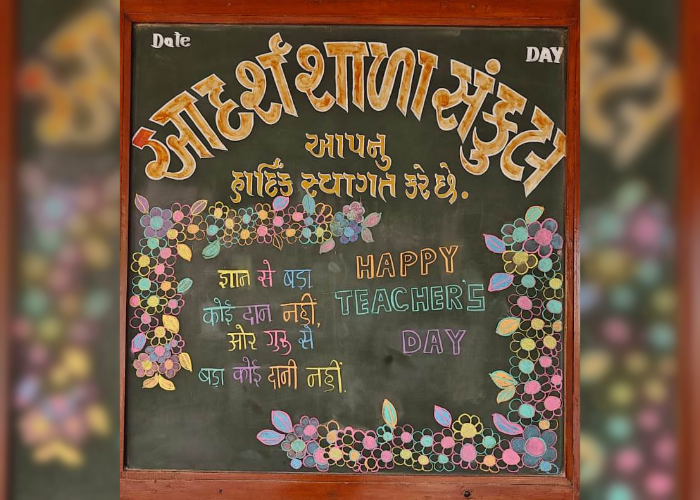 Date
DAY
આદર્શ શાળા સંકુલ
આપનુ
હાર્દિક સ્વાગત કરે છે.
ज्ञान से बड़ा
कोई दान नहीं,
ओर गुरु से
बड़ा कोई दानी नहीं.
HAPPY
TEACHER'S
DAY